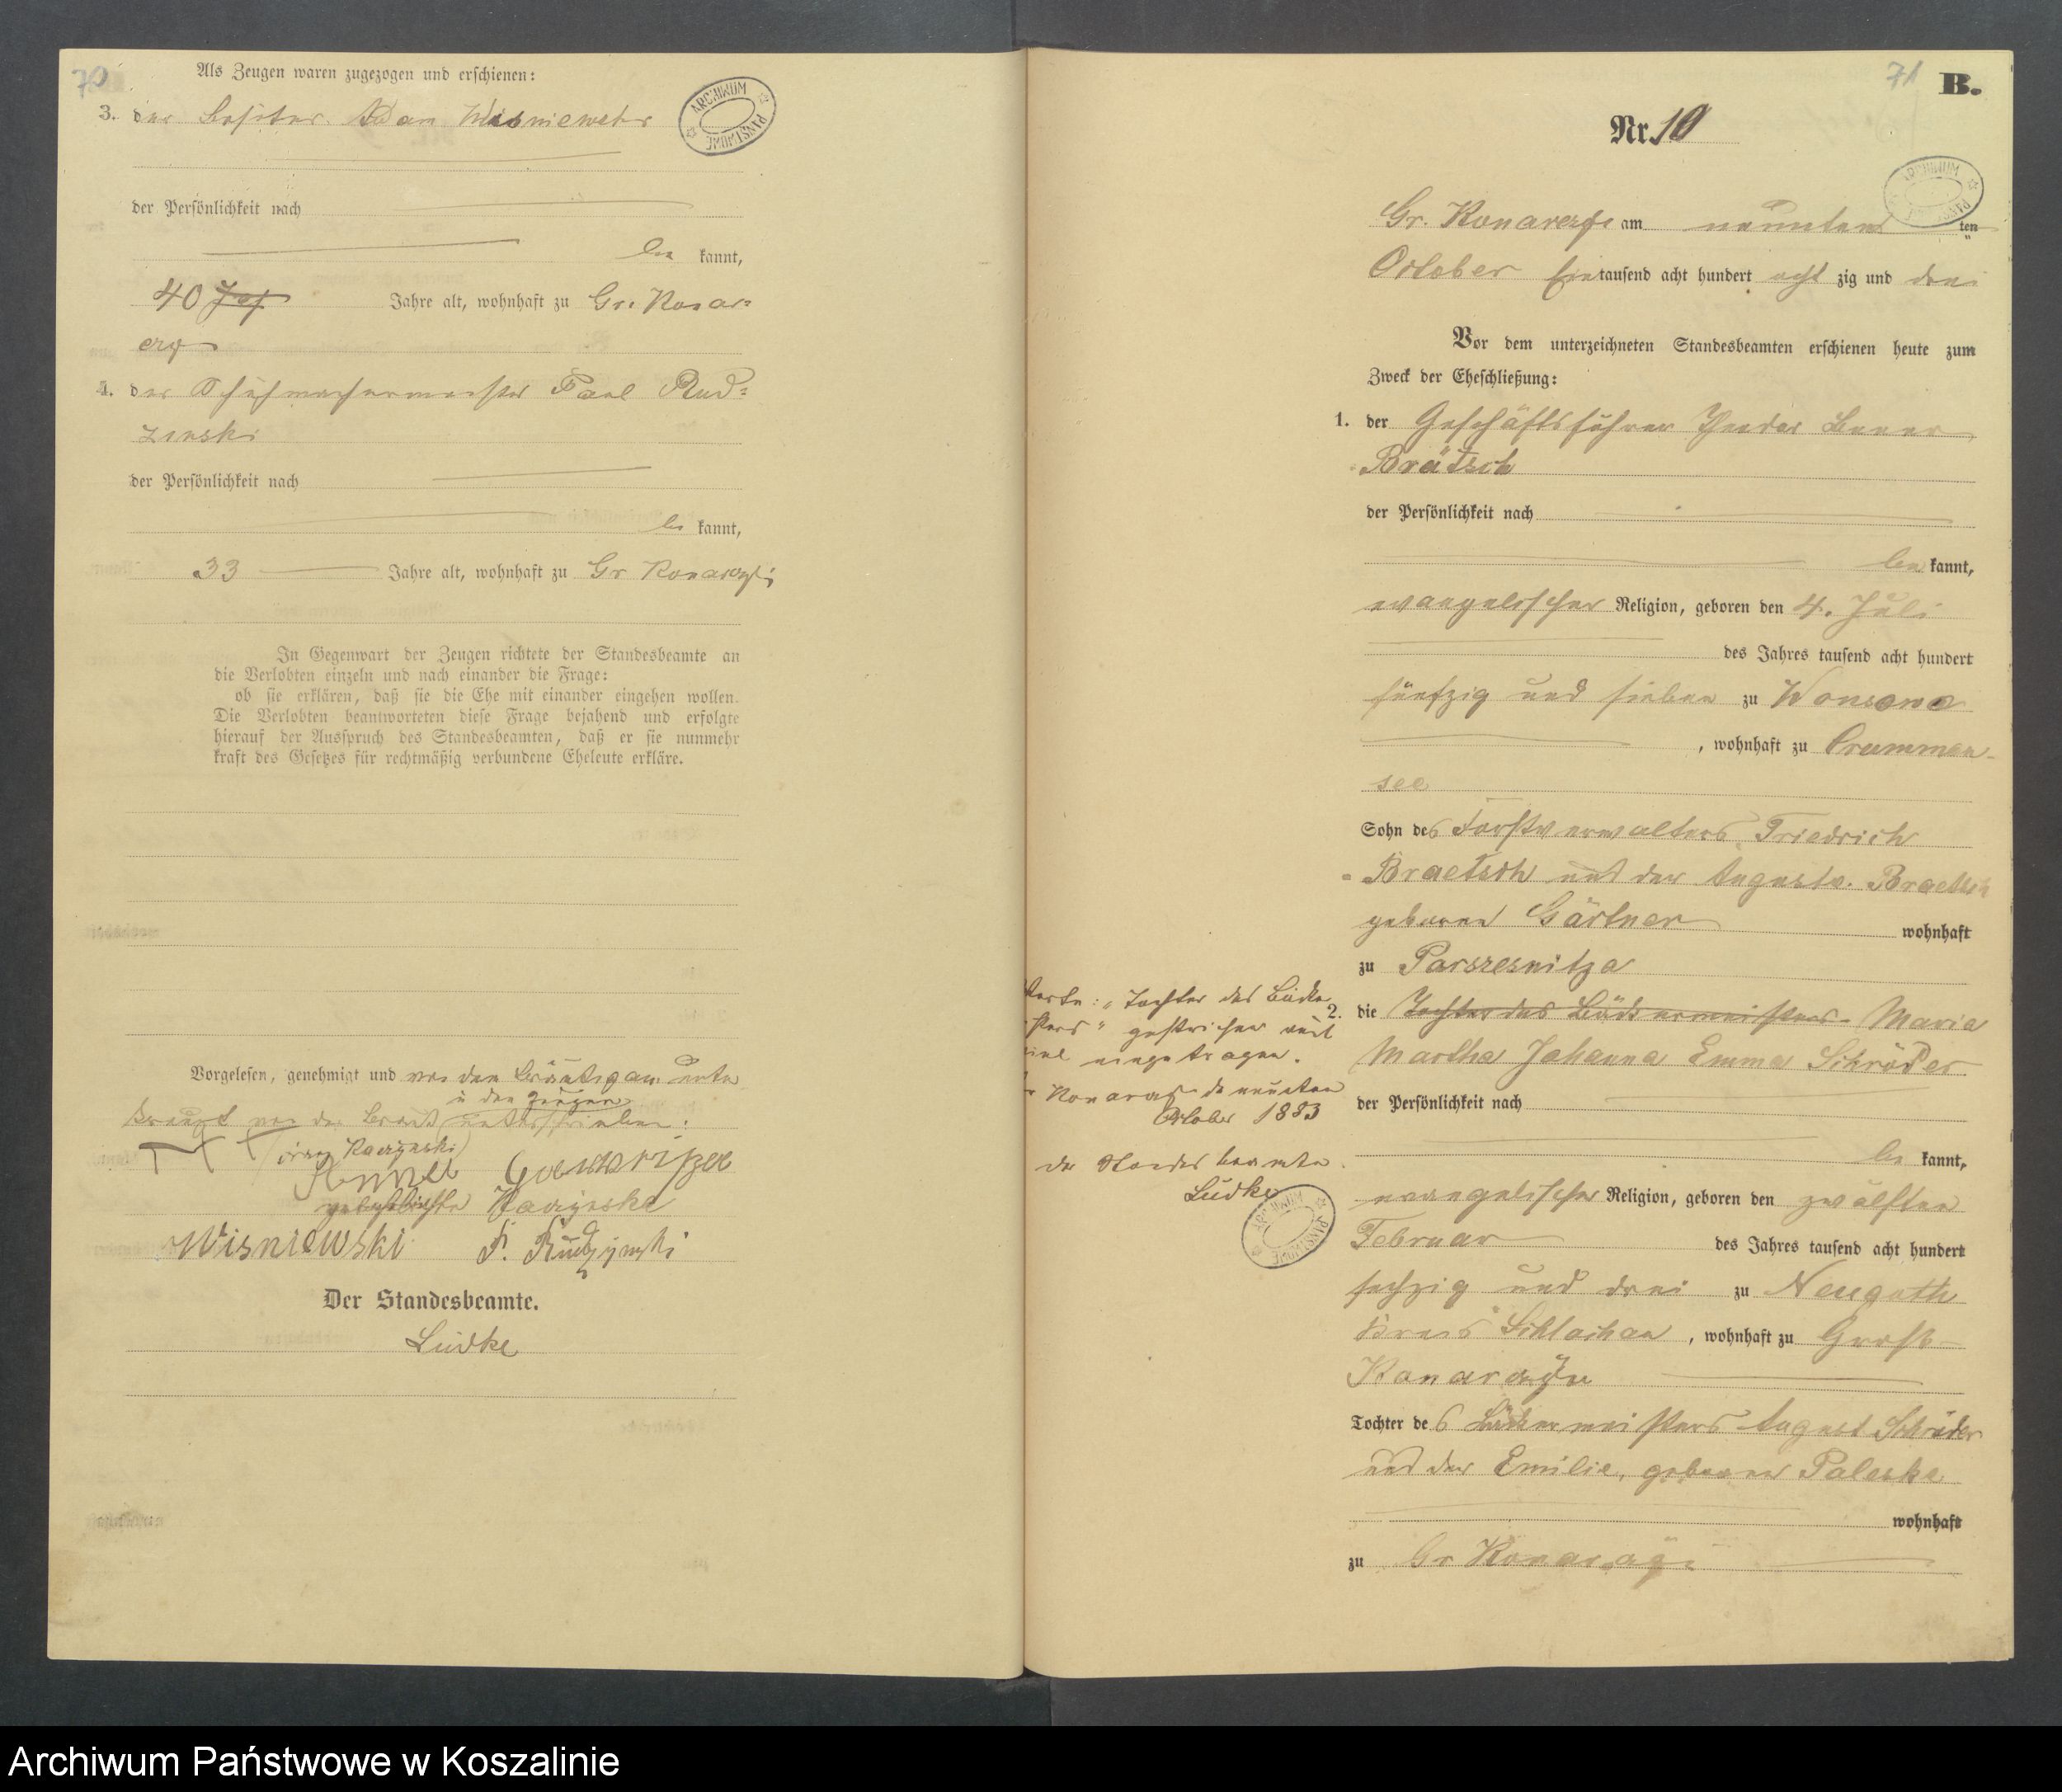 70
Als Zeugen waren zugezogen und erschienen:
ARCHIWUM PAŃSTWOWE
3. der Besitzer Adam Wisniewski
der Persönlichkeit nach
be kannt,
40 Jahre alt, wohnhaft zu Gr. Konar=
4. der Schuhmachermeister Paul Rud=
zinski
der Persönlichkeit nach
be kannt,
33 Jahre alt, wohnhaft zu Gr Konarzyn;
In Gegenwart der Zeugen richtete der Standesbeamte an
die Verlobten einzeln und nach einander die Frage:
ob sie erklären, daß sie die Ehe mit einander eingehen wollen.
Die Verlobten beantworteten diese Frage bejahend und erfolgte
hierauf der Ausspruch des Standesbeamten, daß er sie nunmehr
kraft des Gesetzes für rechtmäßig verbundene Eheleute erkläre.
Vorgelesen, genehmigt und von dem Bräutigam unter
u den Zeugen
kreuzt von der Braut unterschrieben:
Wisniewski P. Rudzynski
Der Standesbeamte.
Lüdke
71
B.
Nr. 10
ARCHIWUM PAŃSTWOWE
Gr. Konarzyn am neunten ten
October Ein tausend acht hundert acht zig und drei
Vor dem unterzeichneten Standesbeamten erschienen heute zum
Zweck der Eheschließung:
1. der Geschäftsführer Theodor
Brätsch
der Persönlichkeit nach
be kannt,
evangelischer Religion, geboren den 4. Juli
des Jahres tausend acht hundert
fünfzig und sieben zu Wonsowo
, wohnhaft zu Crummen-
see
Sohn des Forstverwalters Friedrich
Braetsch und der Auguste Braetsch
geborene Gärtner wohnhaft
zu
2. die Tochter des Bäckermeisters Maria
Martha Johanna Emma Schröder
der Persönlichkeit nach
be kannt,
evangelischer Religion, geboren den zwölften
Februar des Jahres tausend acht hundert
sechzig und drei zu Neuguth
Kreis Schlochau, wohnhaft zu Groß-
Konarzyn
Tochter des Bäckermeisters August Schröder
und der Emilie, geborener Paleske
wohnhaft
zu Gr Konarzyn
"Tochter des Bäcke
sters" gestrichen und
eingetragen.
Konarzyn den neunten
October 1883
der Standesbeamte.
Lüdke
ARCHIWUM PAŃSTWOWE
Archiwum Państwowe w Koszalinie